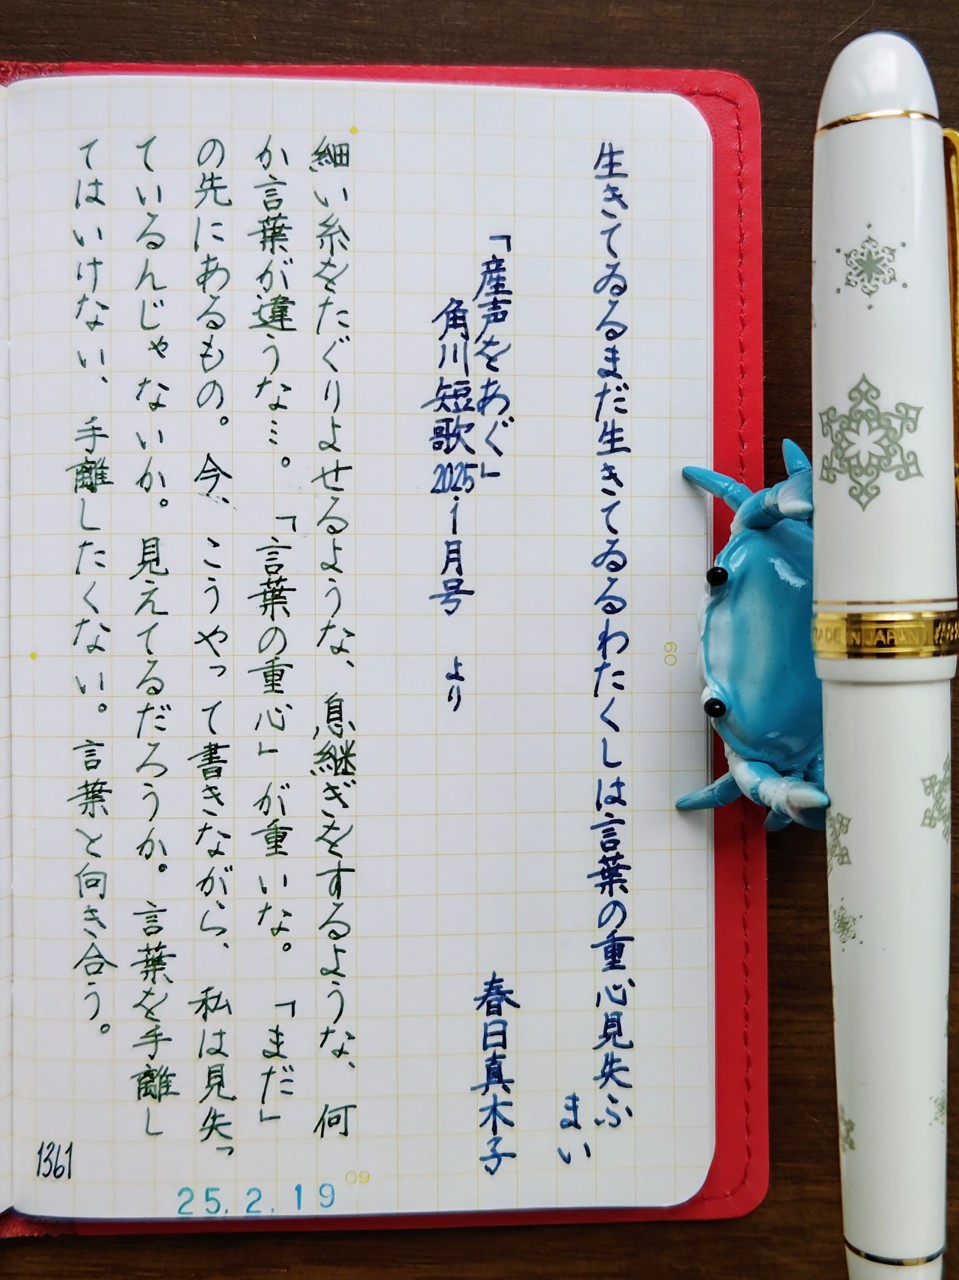 生きてゐるまだ生きてゐるわたくしは言葉の重心見失ふ
まい
春日真木子
「産声をあぐ」
角川短歌2025・1月号 より
細い糸をたぐりよせるような、息継ぎをするような、何
か言葉が違うな…。「言葉の重心」が重いな。「まだ」
の先にあるもの。今、こうやって書きながら、私は見失っ
ているんじゃないか。見えてるだろうか。言葉を手離し
てはいけない、手離したくない。言葉と向き合う。
1361
25.2.19
60
60
MADE IN JAPAN